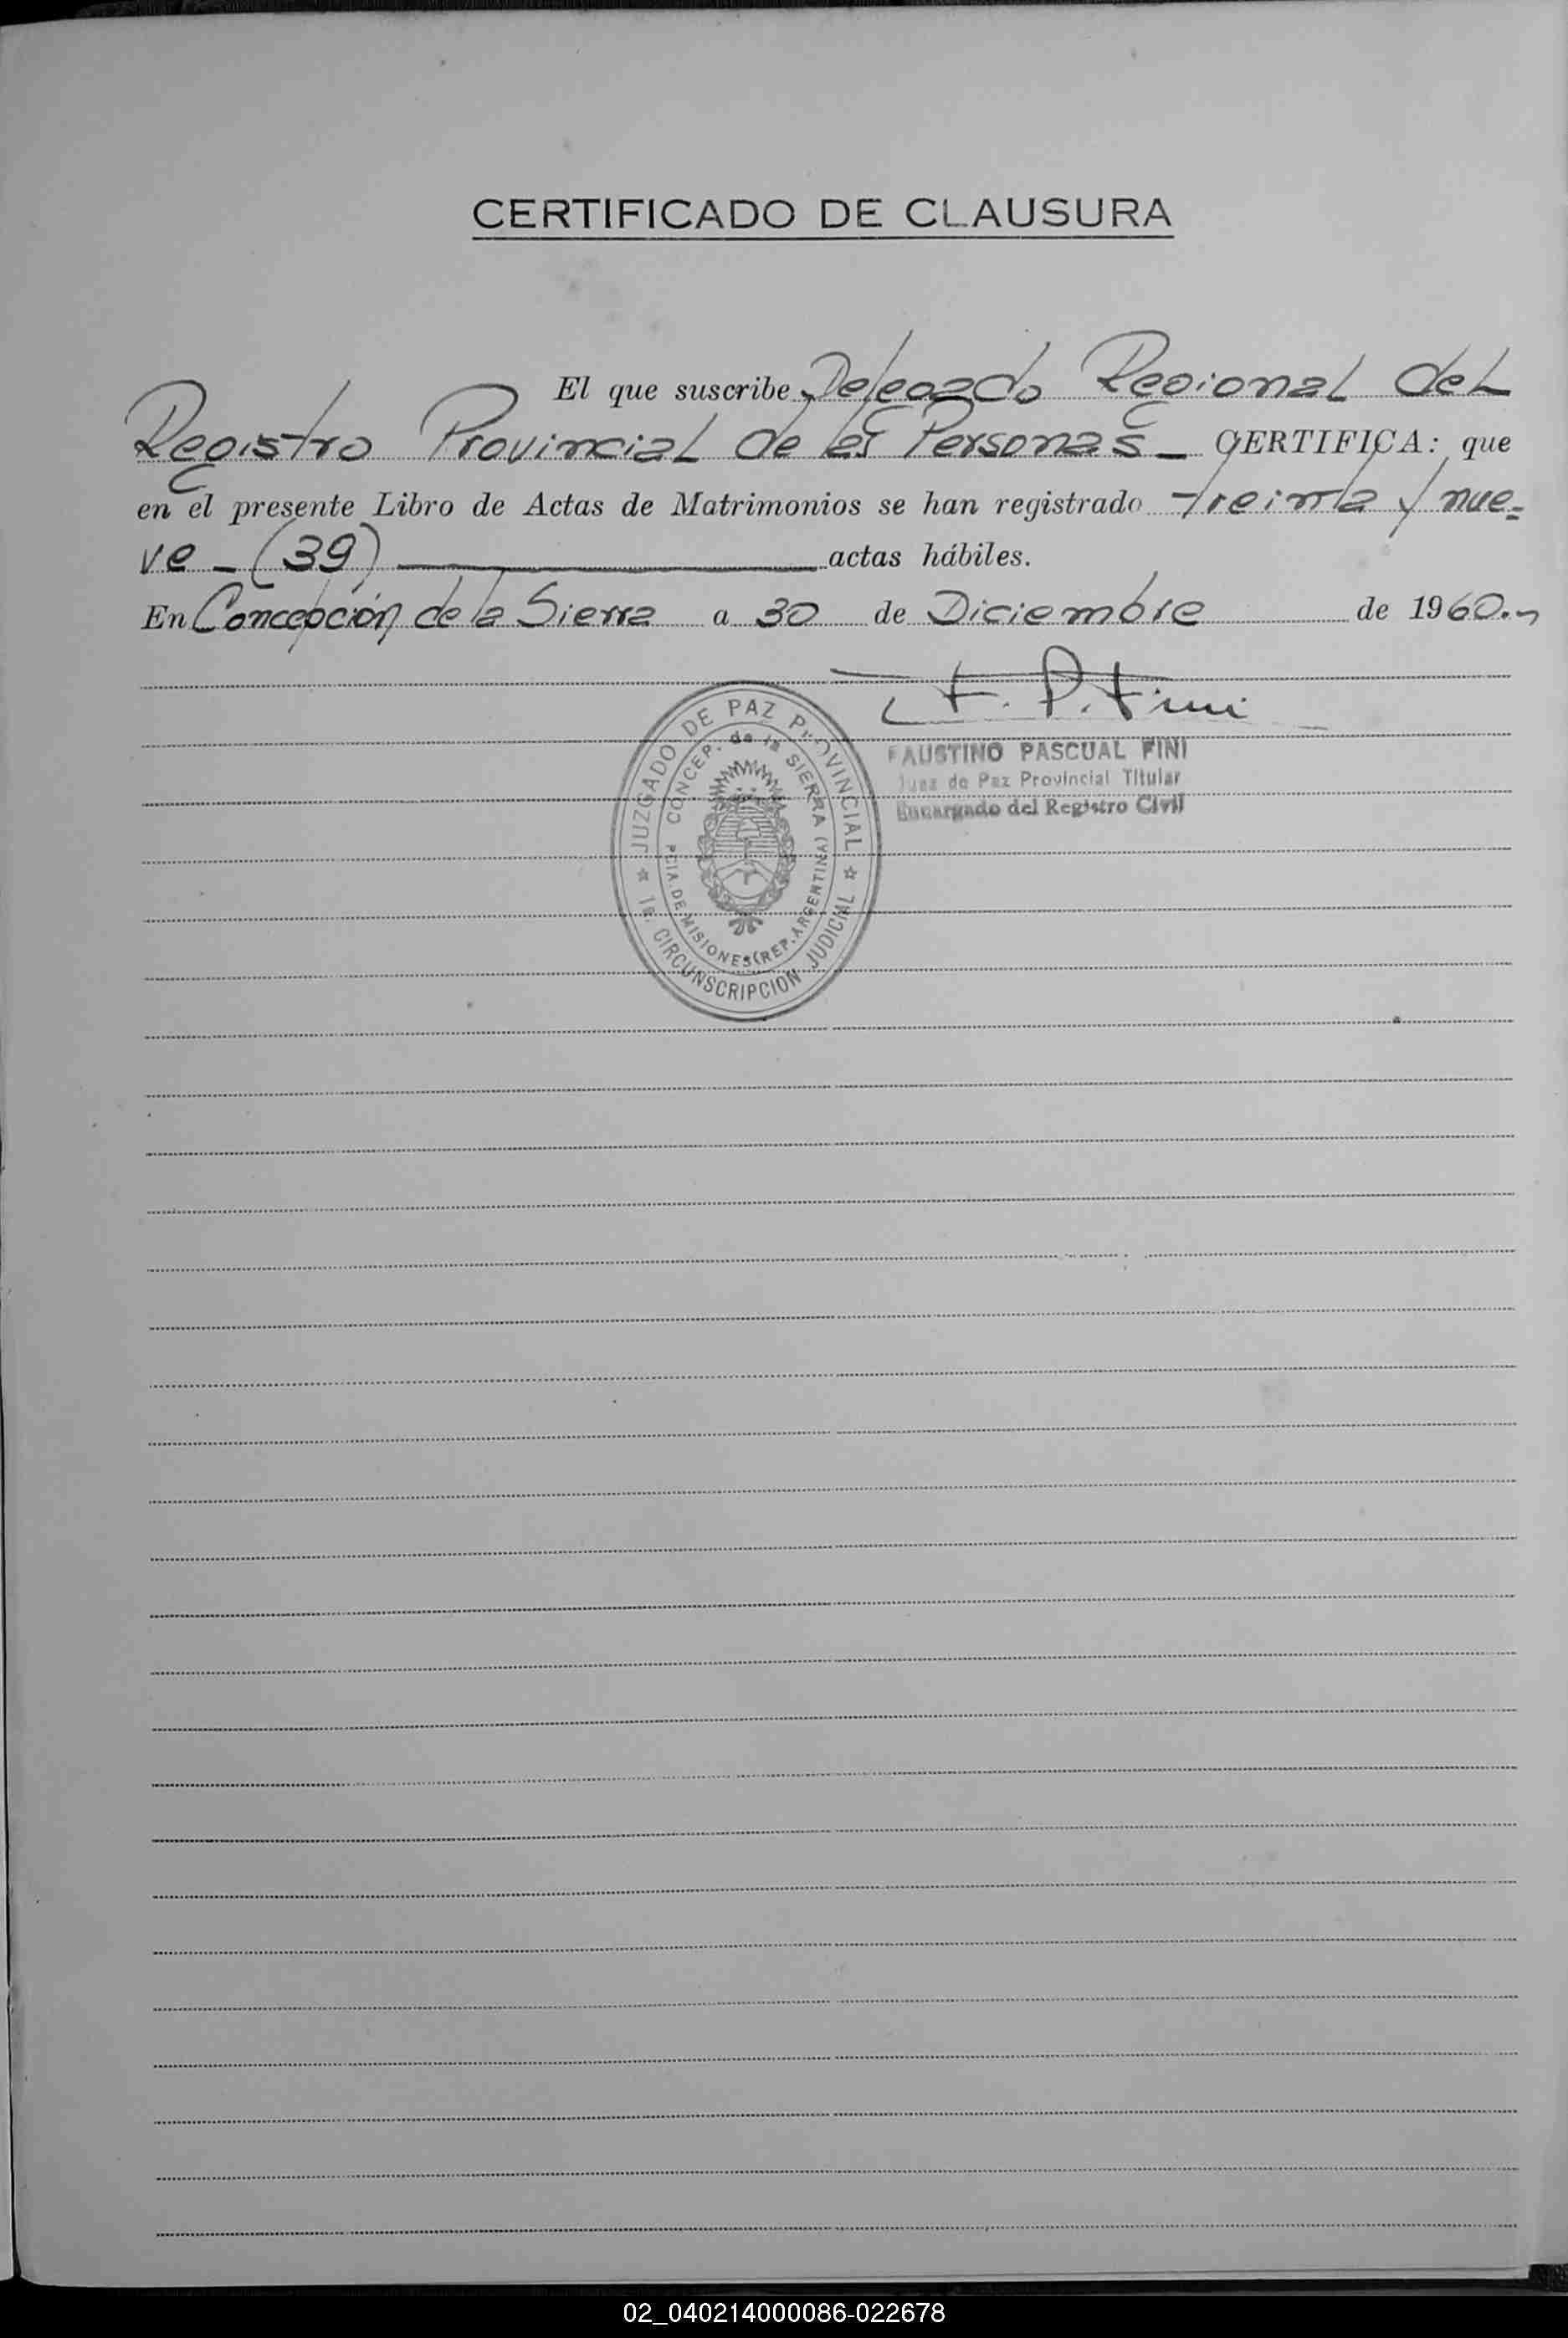 CERTIFICADO DE CLAUSURA
El que suscribe, Delegado Regional del
Registro Provincial de las Personas - CERTIFICA: que
en el presente Libro de Actas de Matrimonios se han registrado treinta y nue-
ve - (39) actas hábiles.
En Concepción de la Sierra a 30 de Diciembre de 1960.-
F. P. Fini
FAUSTINO PASCUAL FINI
Juez de Paz Provincial Titular
Encargado del Registro Civil
JUZGADO DE PAZ PROVINCIAL
CONCEP. de la SIERRA
PCIA. DE MISIONES (REP. ARGENTINA)
1a. CIRCUNSCRIPCION JUDICIAL
02_040214000086-022678